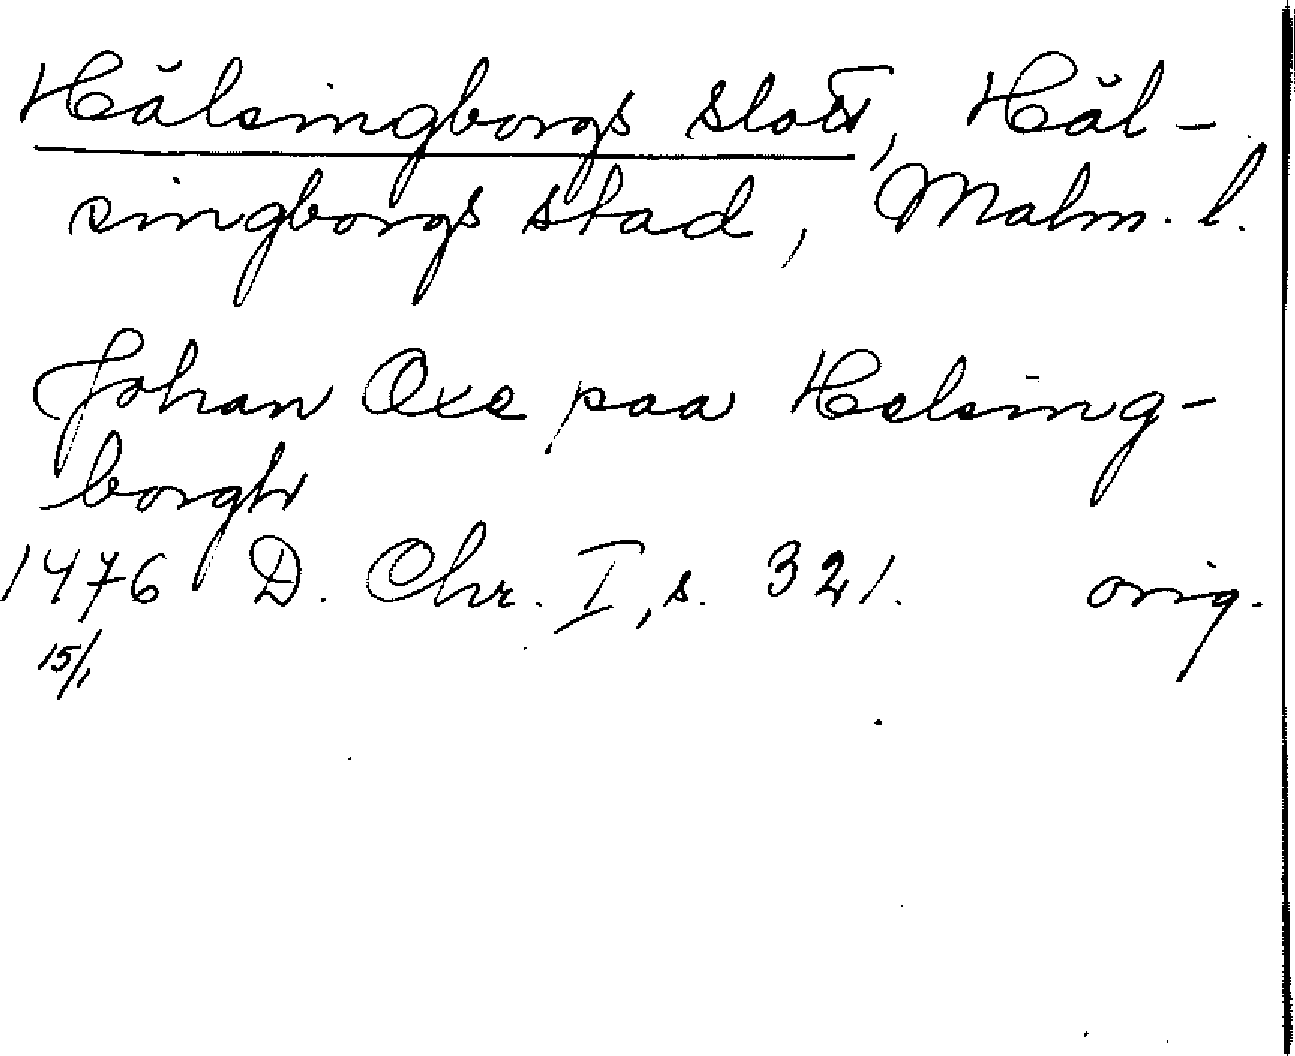 Hälsingborgs slott, Häl-
singborgs stad, Malm. l.
Johan Oxe paa Helsing-
borgh
1476 D. Chr. I, s. 321. orig.
15/1